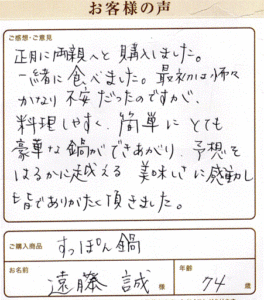 お客様の声
ご感想・ご意見
正月に両親へと購入しました。
一緒に食べました。最初は
かなり不安だったのですが、
料理しやすく、簡単にとても
豪華な鍋ができあがり、予想を
はるかに越える美味しさに感動し
皆でありがたく頂きました。
ご購入商品 すっぽん鍋
お名前 遠藤 誠 様 年齢 74 歳